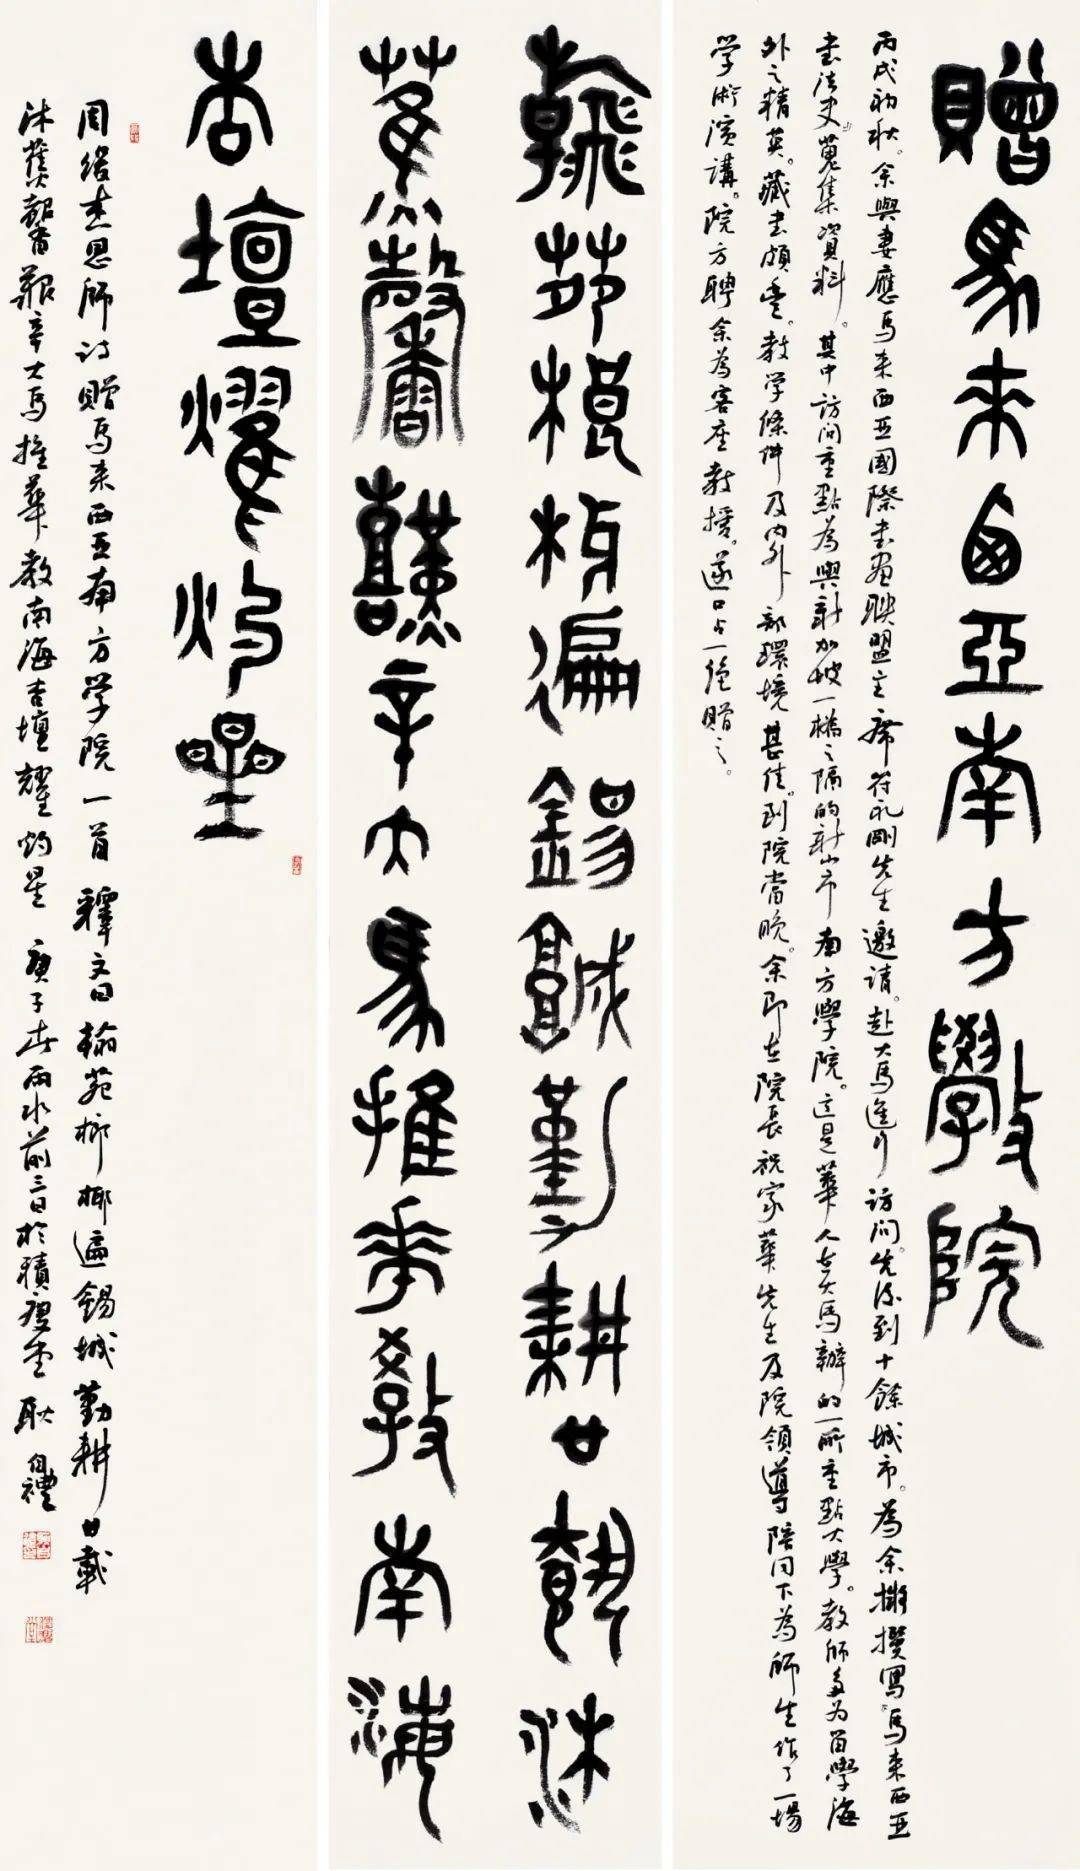 贈馬來西亞南方學院
丙戌初秋。余與妻應馬来西亞國際書画联盟主席符永剛先生邀请。赴大馬進行访问。先后到十餘城市。為余擬撰寫《馬来西亞
書法史》蒐集資料。其中访问重點為與新加坡一橋之隔的新山市南方學院。这是華人在大馬辦的一所重點大學。教師多为留學海
外之精英。藏書頗豐。教学條件及内外部環境甚佳。到院當晚。余即在院長祝家華先生及院領導陪同下為師生作了一場
学術演講。院方聘余為客座教授。遂口占一絶贈之。
翰苑榔椰遍錫城勤耕廿載沐
薰馨艱辛大馬推華教南海
杏壇耀灼星
周俊杰恩師詩贈馬来西亚南方学院一首 釋文曰 翰苑榔椰遍錫城勤耕廿載
沐薰馨艱辛大馬推華教南海杏壇耀灼星 庚子春雨水前三日於積微堂 耿自禮